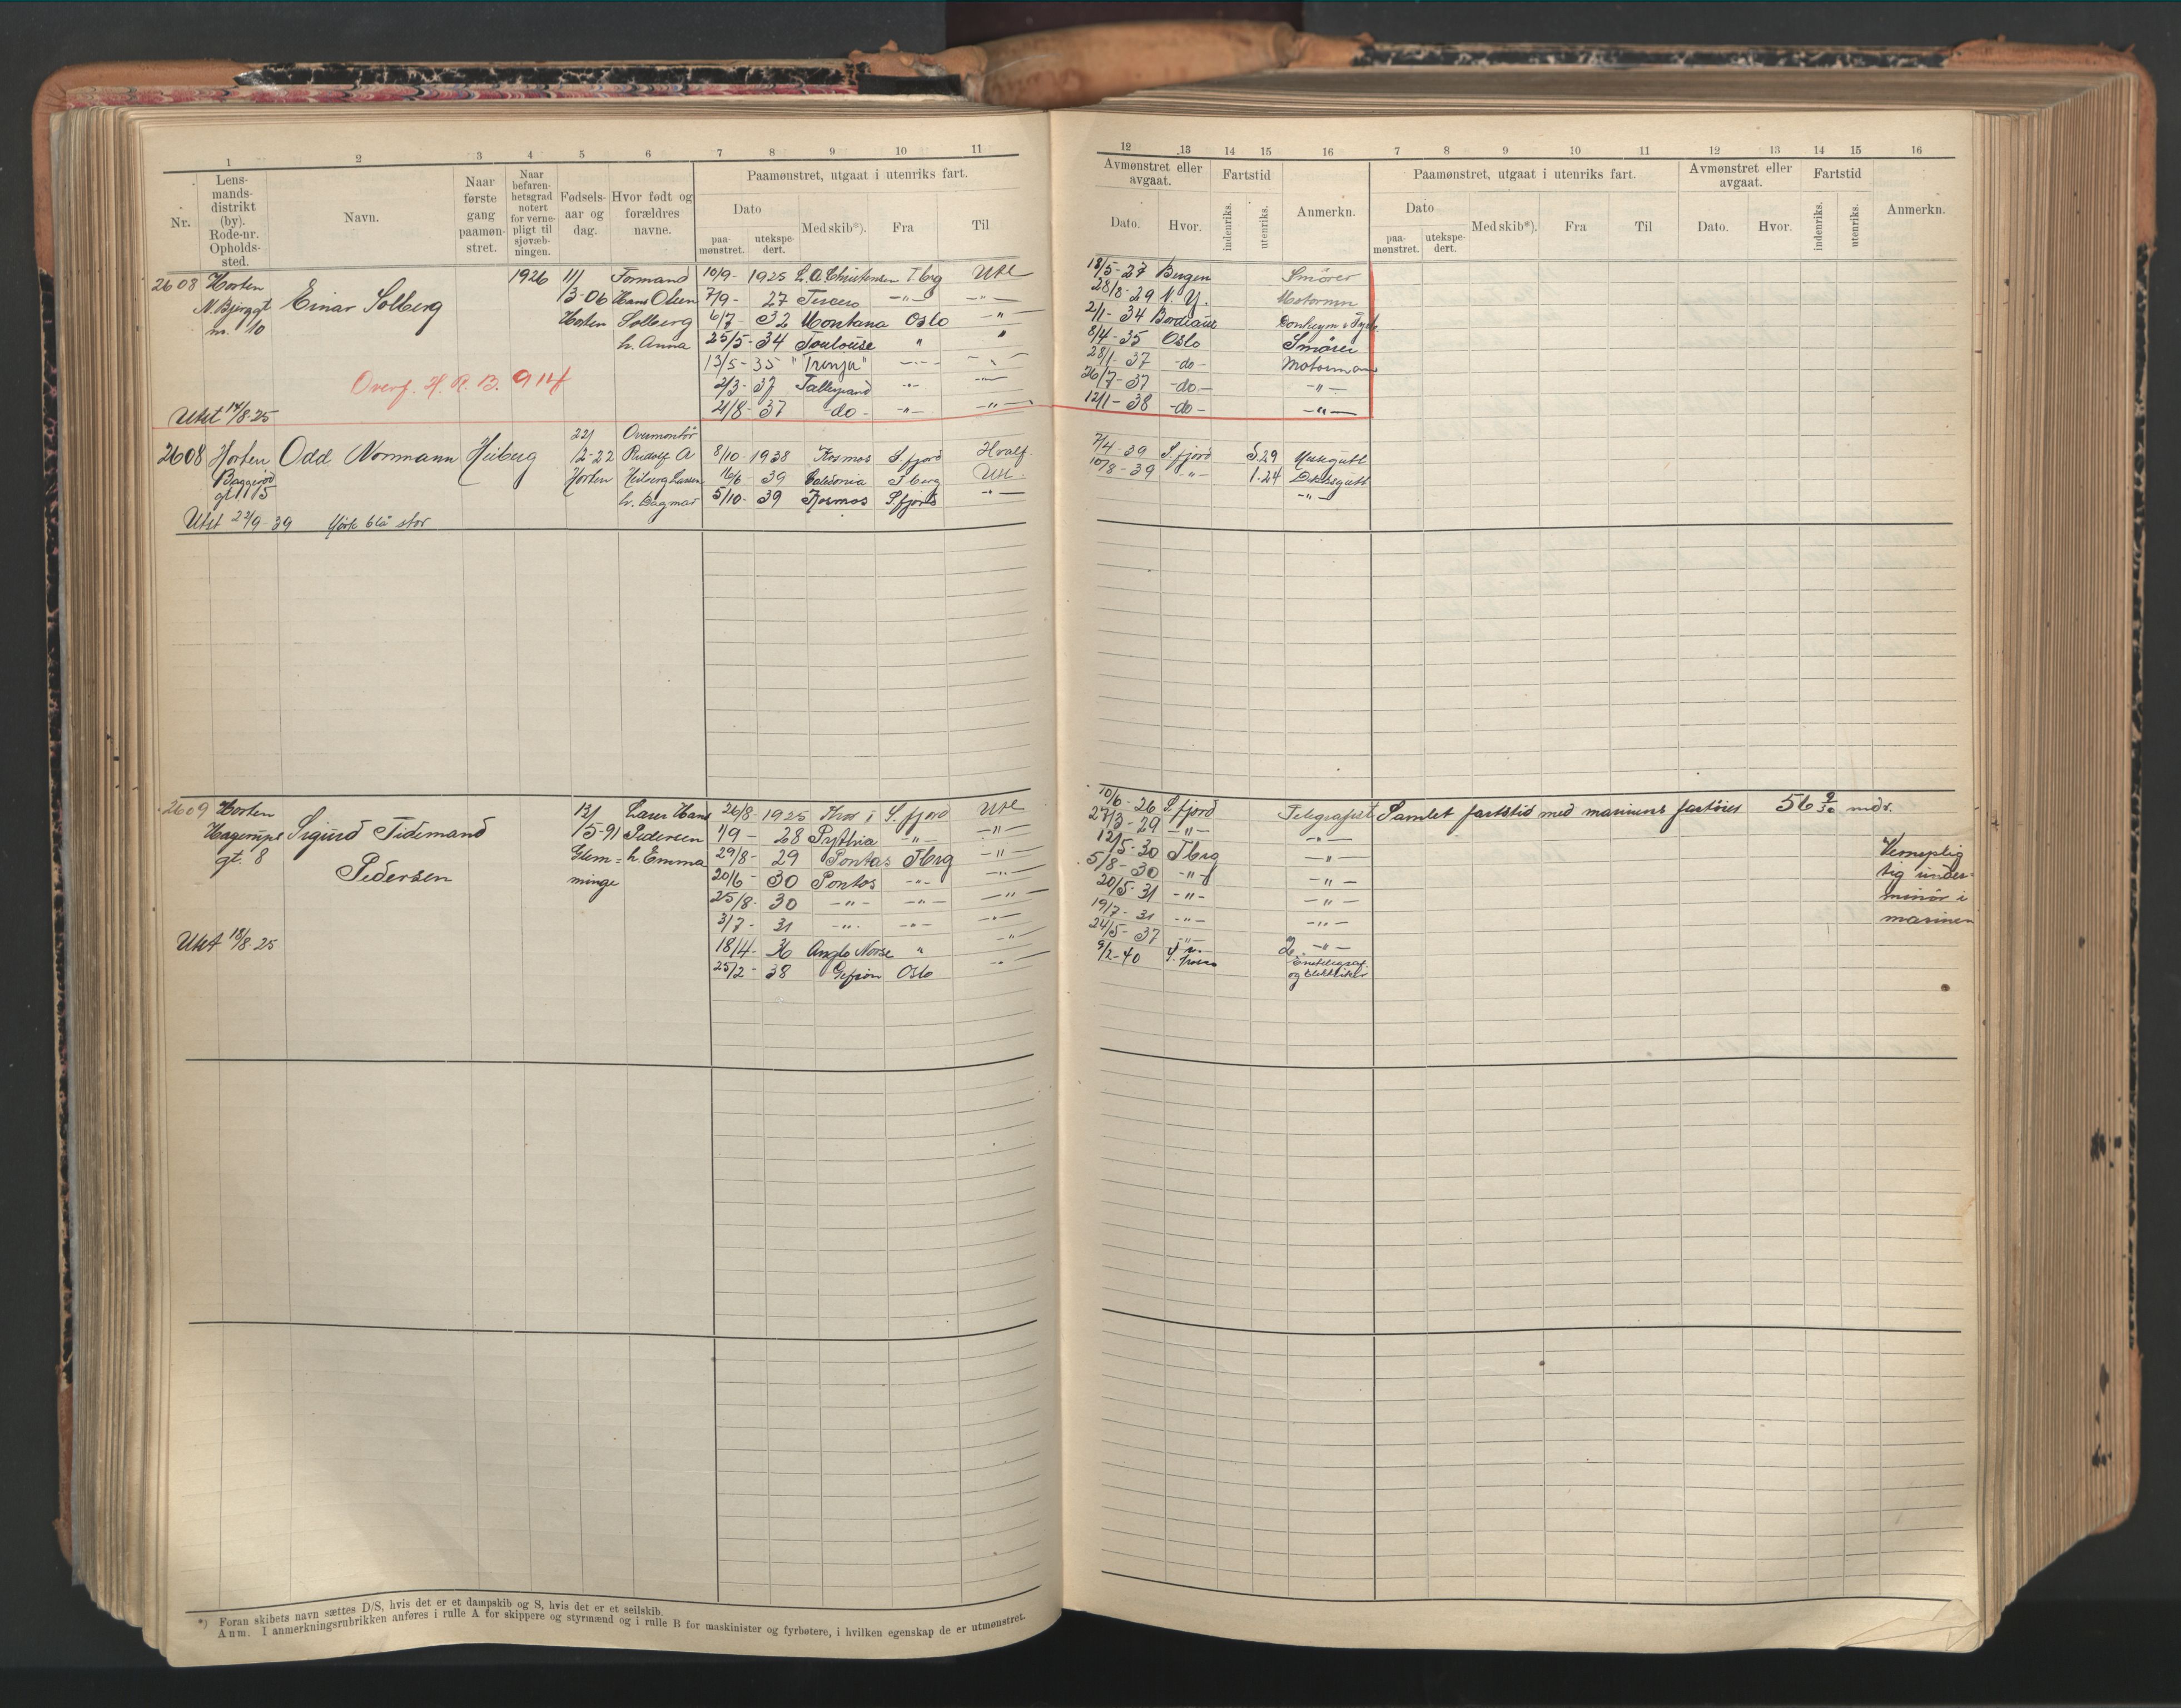 1 2 3 4 5 6 7 8 9 10 11
Nr. Lens-mands-distrikt (by). Rode-nr. Opholds-sted. Navn. Naar første gang paamøn-stret. Naar befaren-hetsgrad notert for verne-pligt til sjøvæb-ningen. Fødsels-aar og dag. Hvor født og forældres navne. Paamønstret, utgaat i utenriks fart.
Dato Med skib*). Fra Til
paa-mønstret. utekspe-dert.
2608 Horten 1926 1/1 Formand 10/9- 1925 L. A. Christensen T.brg Utl
N. Bjerggt Einar Solberg 13-06 Hans Olsen 7/9- 27 -"- -"-
nr. 10 Horten Solberg 6/7- 32 Montana Oslo -"-
h. Anna 25/5-34 Toulouse " "
13/5-35 "Tronja" -"-
Overf. H. R. B. 914 2/3-37 -"- -"-
Utst 14/8-25 21/8-37 -do- -"- -"-
22/ Overmontør
2608 Horten Odd Normann Heiberg 12-22 Rudolf A 8/10-1938 Kosmos S.fjord Hvalf.
gt 15 Horten Heiberg Larsen 16/6 39 Caledonia T.berg Utl.
h. Dagmar 5/10-39 Kosmos S.fjord -"-
Utst 22/9-39 Mørk blå stor
2609 Horten 12/ Lars Hans 26/8-1925 S.fjord Utl
Sigurd Tidemand 15-91 Pedersen 1/9- 28 Pythia -"- -"-
gt. 8 Glem= h. Emma 29/8- 29 Pontos T.brg -"-
Pedersen minge 20/6- 30 Pontos -"- -"-
25/8- 30 -"- -"- -"-
3/7- 31 -"- -"- -"-
Utst 18/8-25 18/4- 36 Anglo Norse " -"-
25/2- 38 Gefion Oslo -"-
*) Foran skibets navn sættes D/S, hvis det er et dampskib og S, hvis det er et seilskib.
Anm. I anmerkningsrubrikken anføres i rulle A for skippere og styrmænd og i rulle B for maskinister og fyrbøtere, i hvilken egenskap de er utmønstret.
12 13 14 15 16 7 8 9 10 11 12 13 14 15 16
Avmønstret eller avgaat. Fartstid Anmerkn. Paamønstret, utgaat i utenriks fart. Avmønstret eller avgaat. Fartstid Anmerkn.
Dato. Hvor. indenriks. utenriks. Dato Med skib*). Fra Til Dato. Hvor. indenriks. utenriks.
paa-mønstret. utekspe-dert.
18/5-27 Bergen Smører
28/8-29 N.Y. Motormn
2/1-34 Bordeaux
8/4-35 Oslo Smører
28/1-37 -do- Motormann
26/7-37 -do- -"-
12/1-38 -do- -"-
7/4-39 S.fjord 5.29 Messgutt
10/8-39 -"- 1.24 Dekksgutt
-"-
10/6-26 S.fjord Telegrafist Samlet fartstid med marinens fartøier 56 9/30 mdr.
27/3-29 -"- -"-
12/5-30 T.brg -"- Verneplig
5/8-30 -"- -"- tig under-
20/5-31 -"- -"- minør i
19/7-31 -"- -"- marinen
24/5-37 -"- 2. -"-
9/2-40 Enetelegraf.
og elektriker